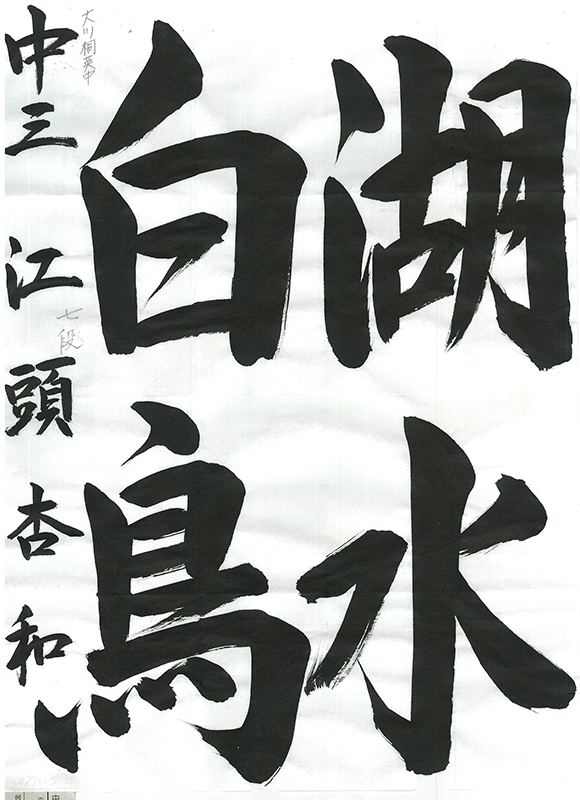 湖水
白鳥
中三 江頭杏和
大川桐英中
七段